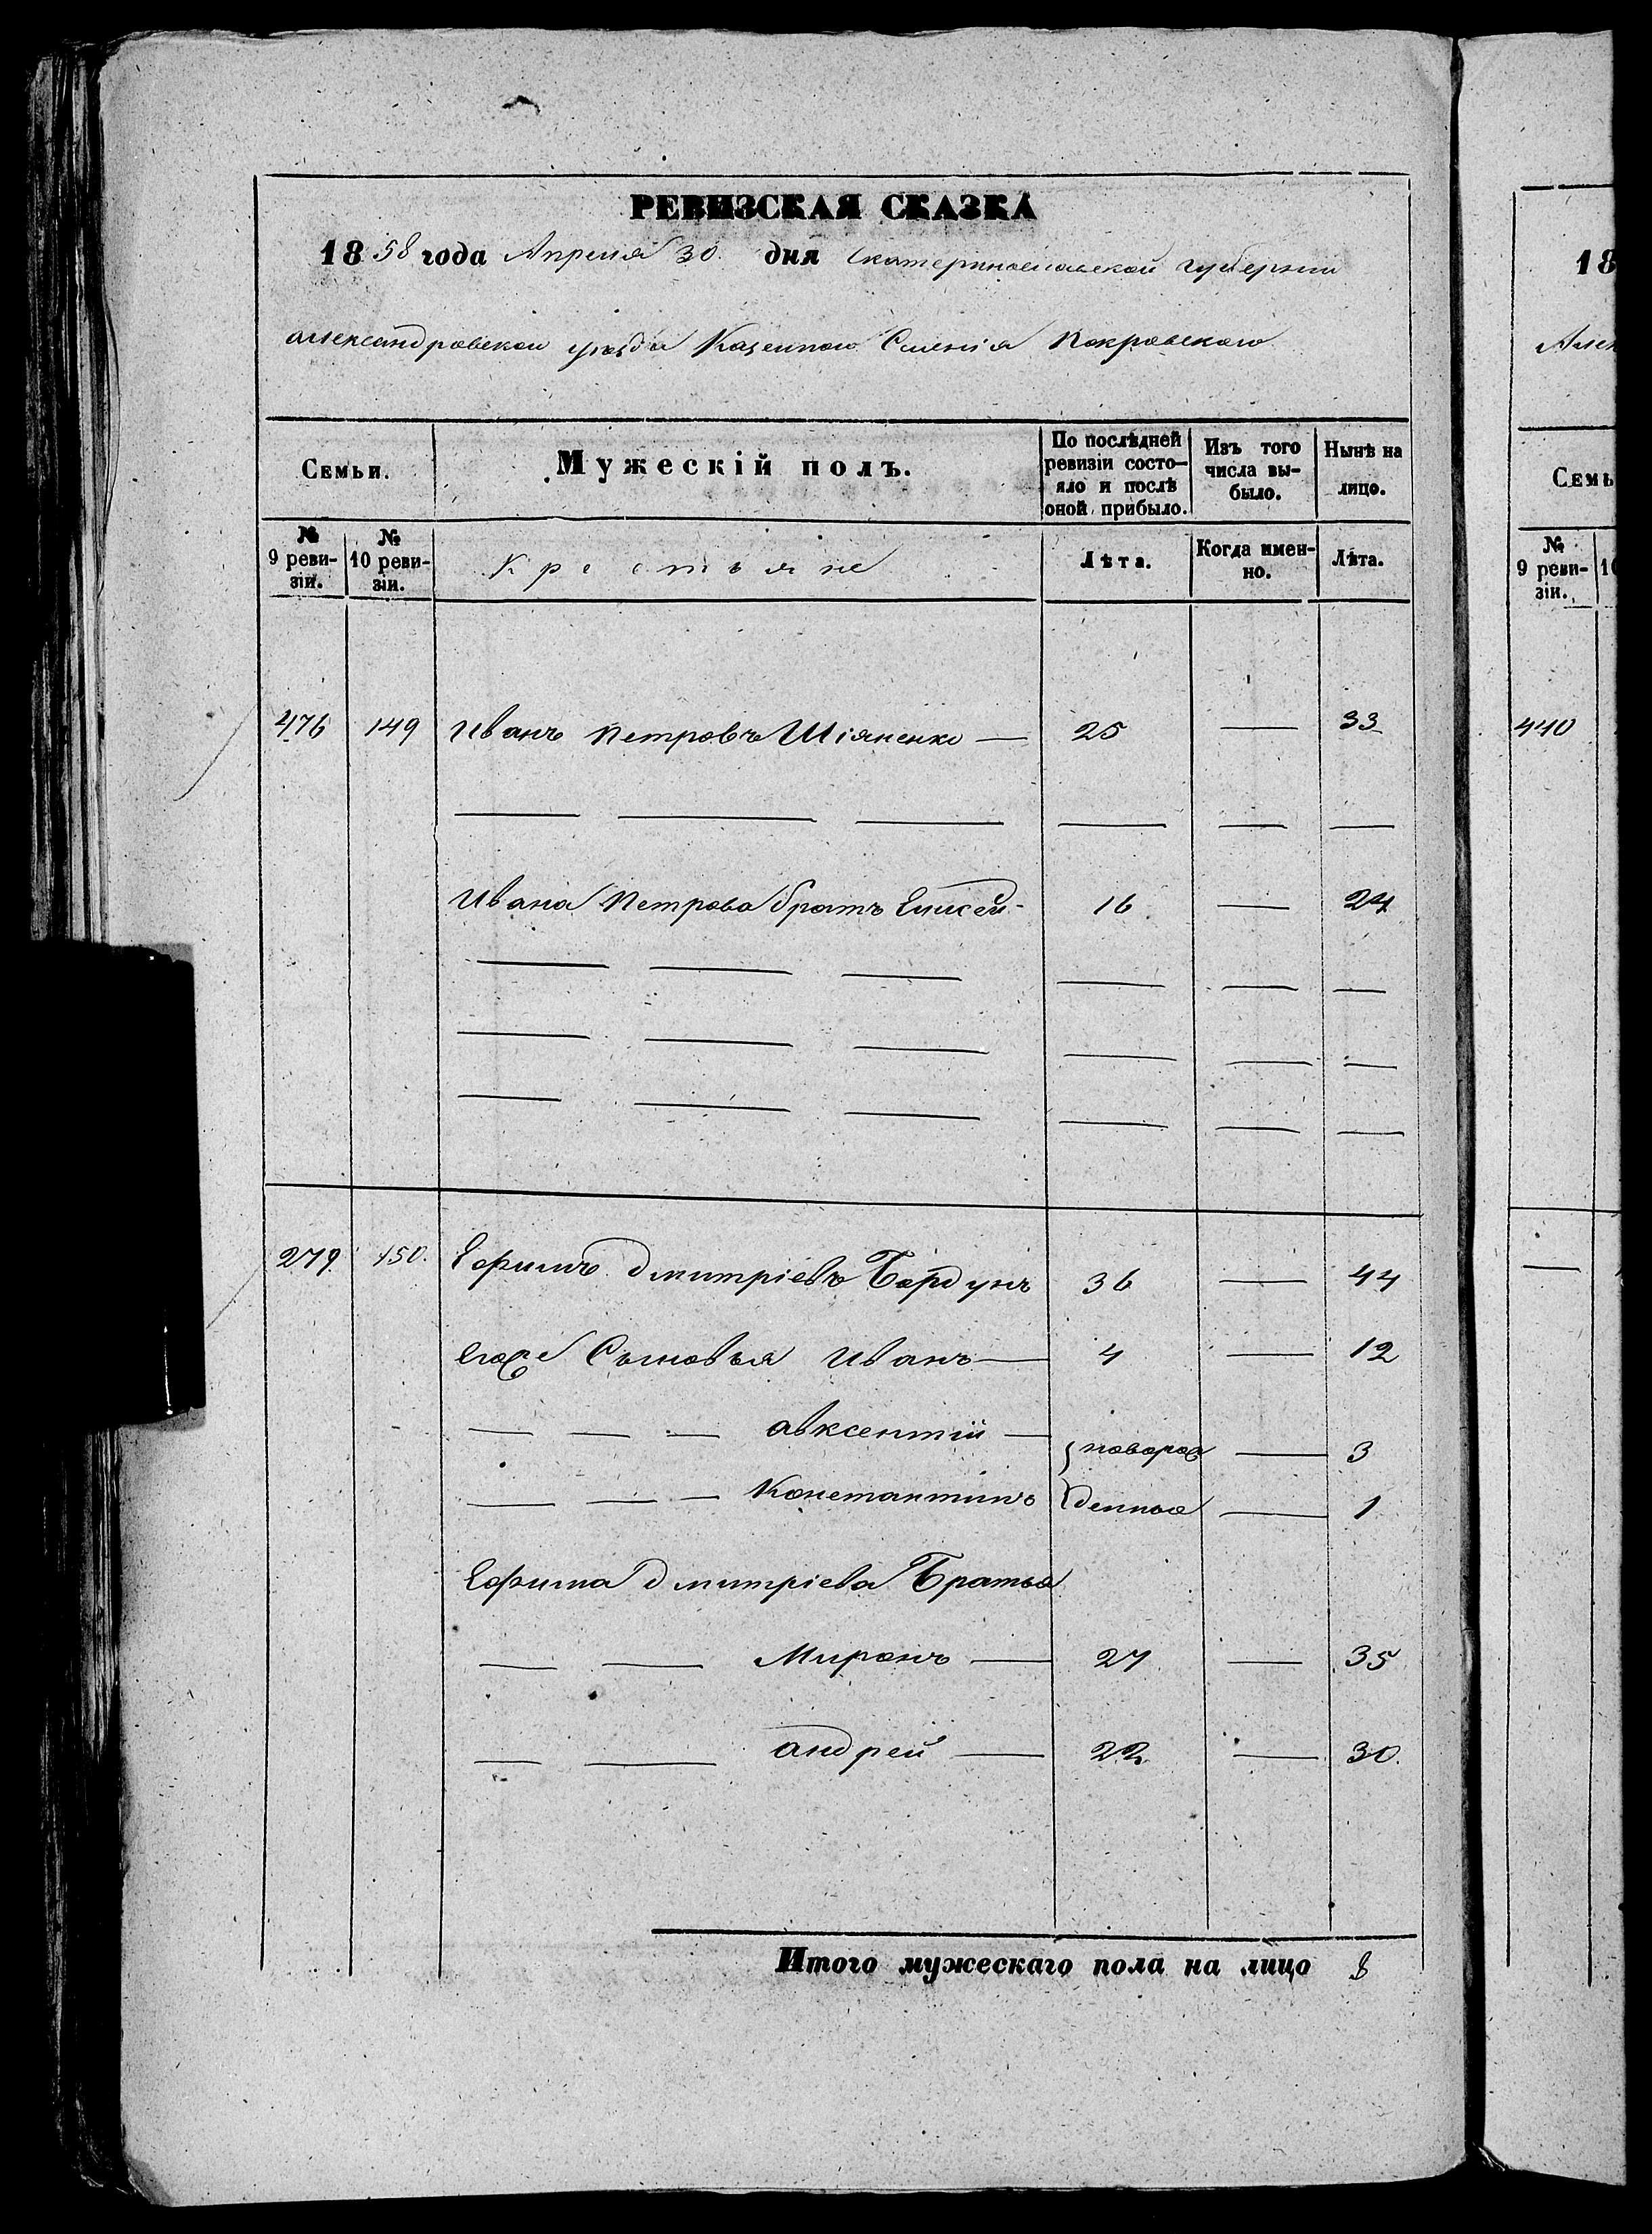 РЕВИЗСКАЯ СКАЗКА
1858 года Апреля 30. дня Екатеринославской губернии
Александровскои уѣзда Казенного Селенія Покровского
Семьи.
Мужескій полъ.
По послѣдней ревизіи состо-яло и послѣ оной прибыло.
Изъ того числа вы-было.
Нынѣ на лицо.
№ 9 реви-зіи.
№ 10 реви-зіи.
Крестьяне
Лѣта.
Когда имен-но.
Лѣта.
476 149 Иванъ Петровъ Шіяненко — 25 — 33
Ивана Петрова братъ Елисей - 16 — 24
279. 150. Ефимъ Дмитріевъ Бардунъ 36 — 44
Егоже Сыновья Иванъ — 4 — 12
— — — Авксентий — новорож — 3
— — — Константинъ денные — 1
Ефима Дмитріева Братья
— — Миронъ — 27 — 35
— — Андрей — 22 — 30.
Итого мужескаго пола на лицо 8
18
Алек
Семь
№ 9 реви-зіи.
440